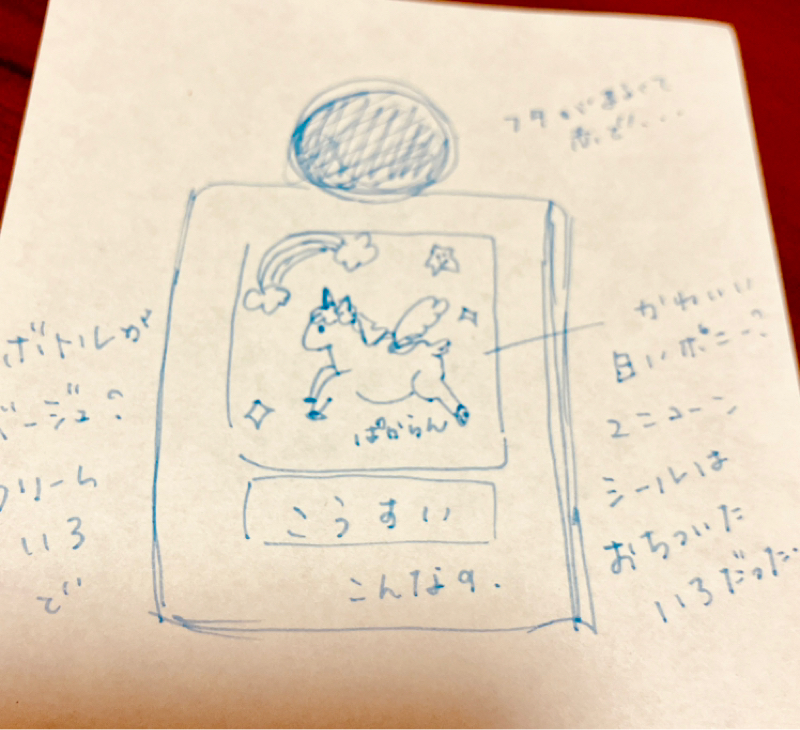 フタがまるくて
ボトルが
ベージュ?
クリーム
いろ
で
ぱからん
こうすい
こんなの.
かわいい
白いポニー?
ユニコーン
シールは
おちついた
いろだった.